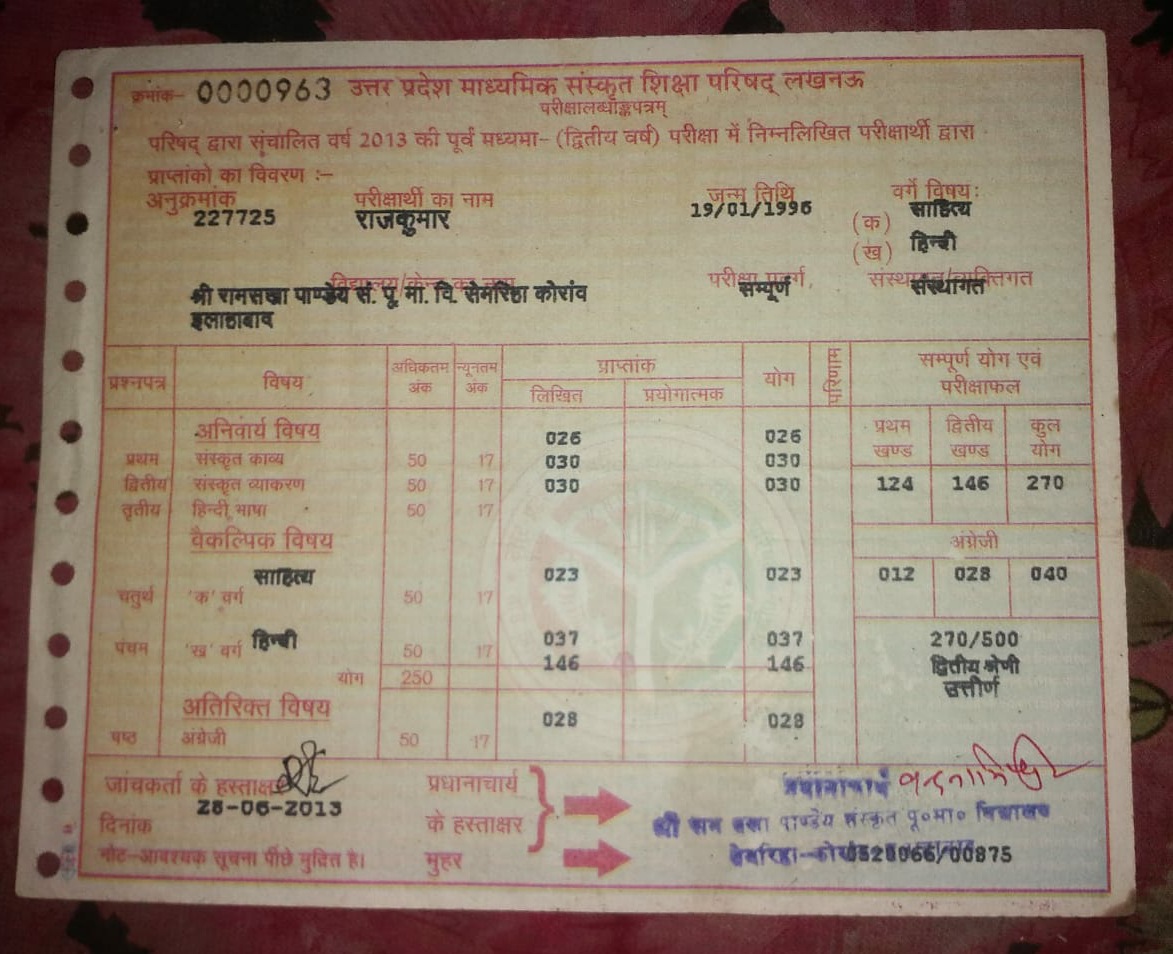 क्रमांक- 0000963 उत्तर प्रदेश माध्यमिक संस्कृत शिक्षा परिषद् लखनऊ
परीक्षालब्धाङ्कपत्रम्
परिषद् द्वारा संचालित वर्ष 2013 की पूर्व मध्यमा- (द्वितीय वर्ष) परीक्षा में निम्नलिखित परीक्षार्थी द्वारा
प्राप्तांको का विवरण :–
अनुक्रमांक परीक्षार्थी का नाम जन्म तिथि वर्ग विषय:
227725 राजकुमार 19/01/1996 (क) साहित्य
(ख) हिन्दी
विद्यालय/केन्द्र का नाम परीक्षा प्रवर्ग, संस्थागत/व्यक्तिगत
श्री रामसखा पाण्डेय सं. पू. मा. वि. सेमरिहा कोरांव सम्पूर्ण संस्थागत
इलाहाबाद
प्रश्नपत्र विषय अधिकतम अंक न्यूनतम अंक प्राप्तांक योग परिणाम सम्पूर्ण योग एवं परीक्षाफल
लिखित प्रयोगात्मक
प्रथम खण्ड द्वितीय खण्ड कुल योग
अनिवार्य विषय 026 026
प्रथम संस्कृत काव्य 50 17 030 030
द्वितीय संस्कृत व्याकरण 50 17 030 030 124 146 270
तृतीय हिन्दी भाषा 50 17
वैकल्पिक विषय अंग्रेजी
साहित्य 023 023 012 028 040
चतुर्थ 'क' वर्ग 50 17
पंचम 'ख' वर्ग हिन्दी 50 17 037 037 270/500
146 146 द्वितीय श्रेणी
योग 250 उत्तीर्ण
अतिरिक्त विषय 028 028
षष्ठ अंग्रेजी 50 17
जांचकर्ता के हस्ताक्षर प्रधानाचार्य प्रधानाचार्य
28-06-2013
दिनांक के हस्ताक्षर श्री राम सखा पाण्डेय संस्कृत पू०मा० विद्यालय
नोट-आवश्यक सूचना पीछे मुद्रित है। मुहर 0520066/00875